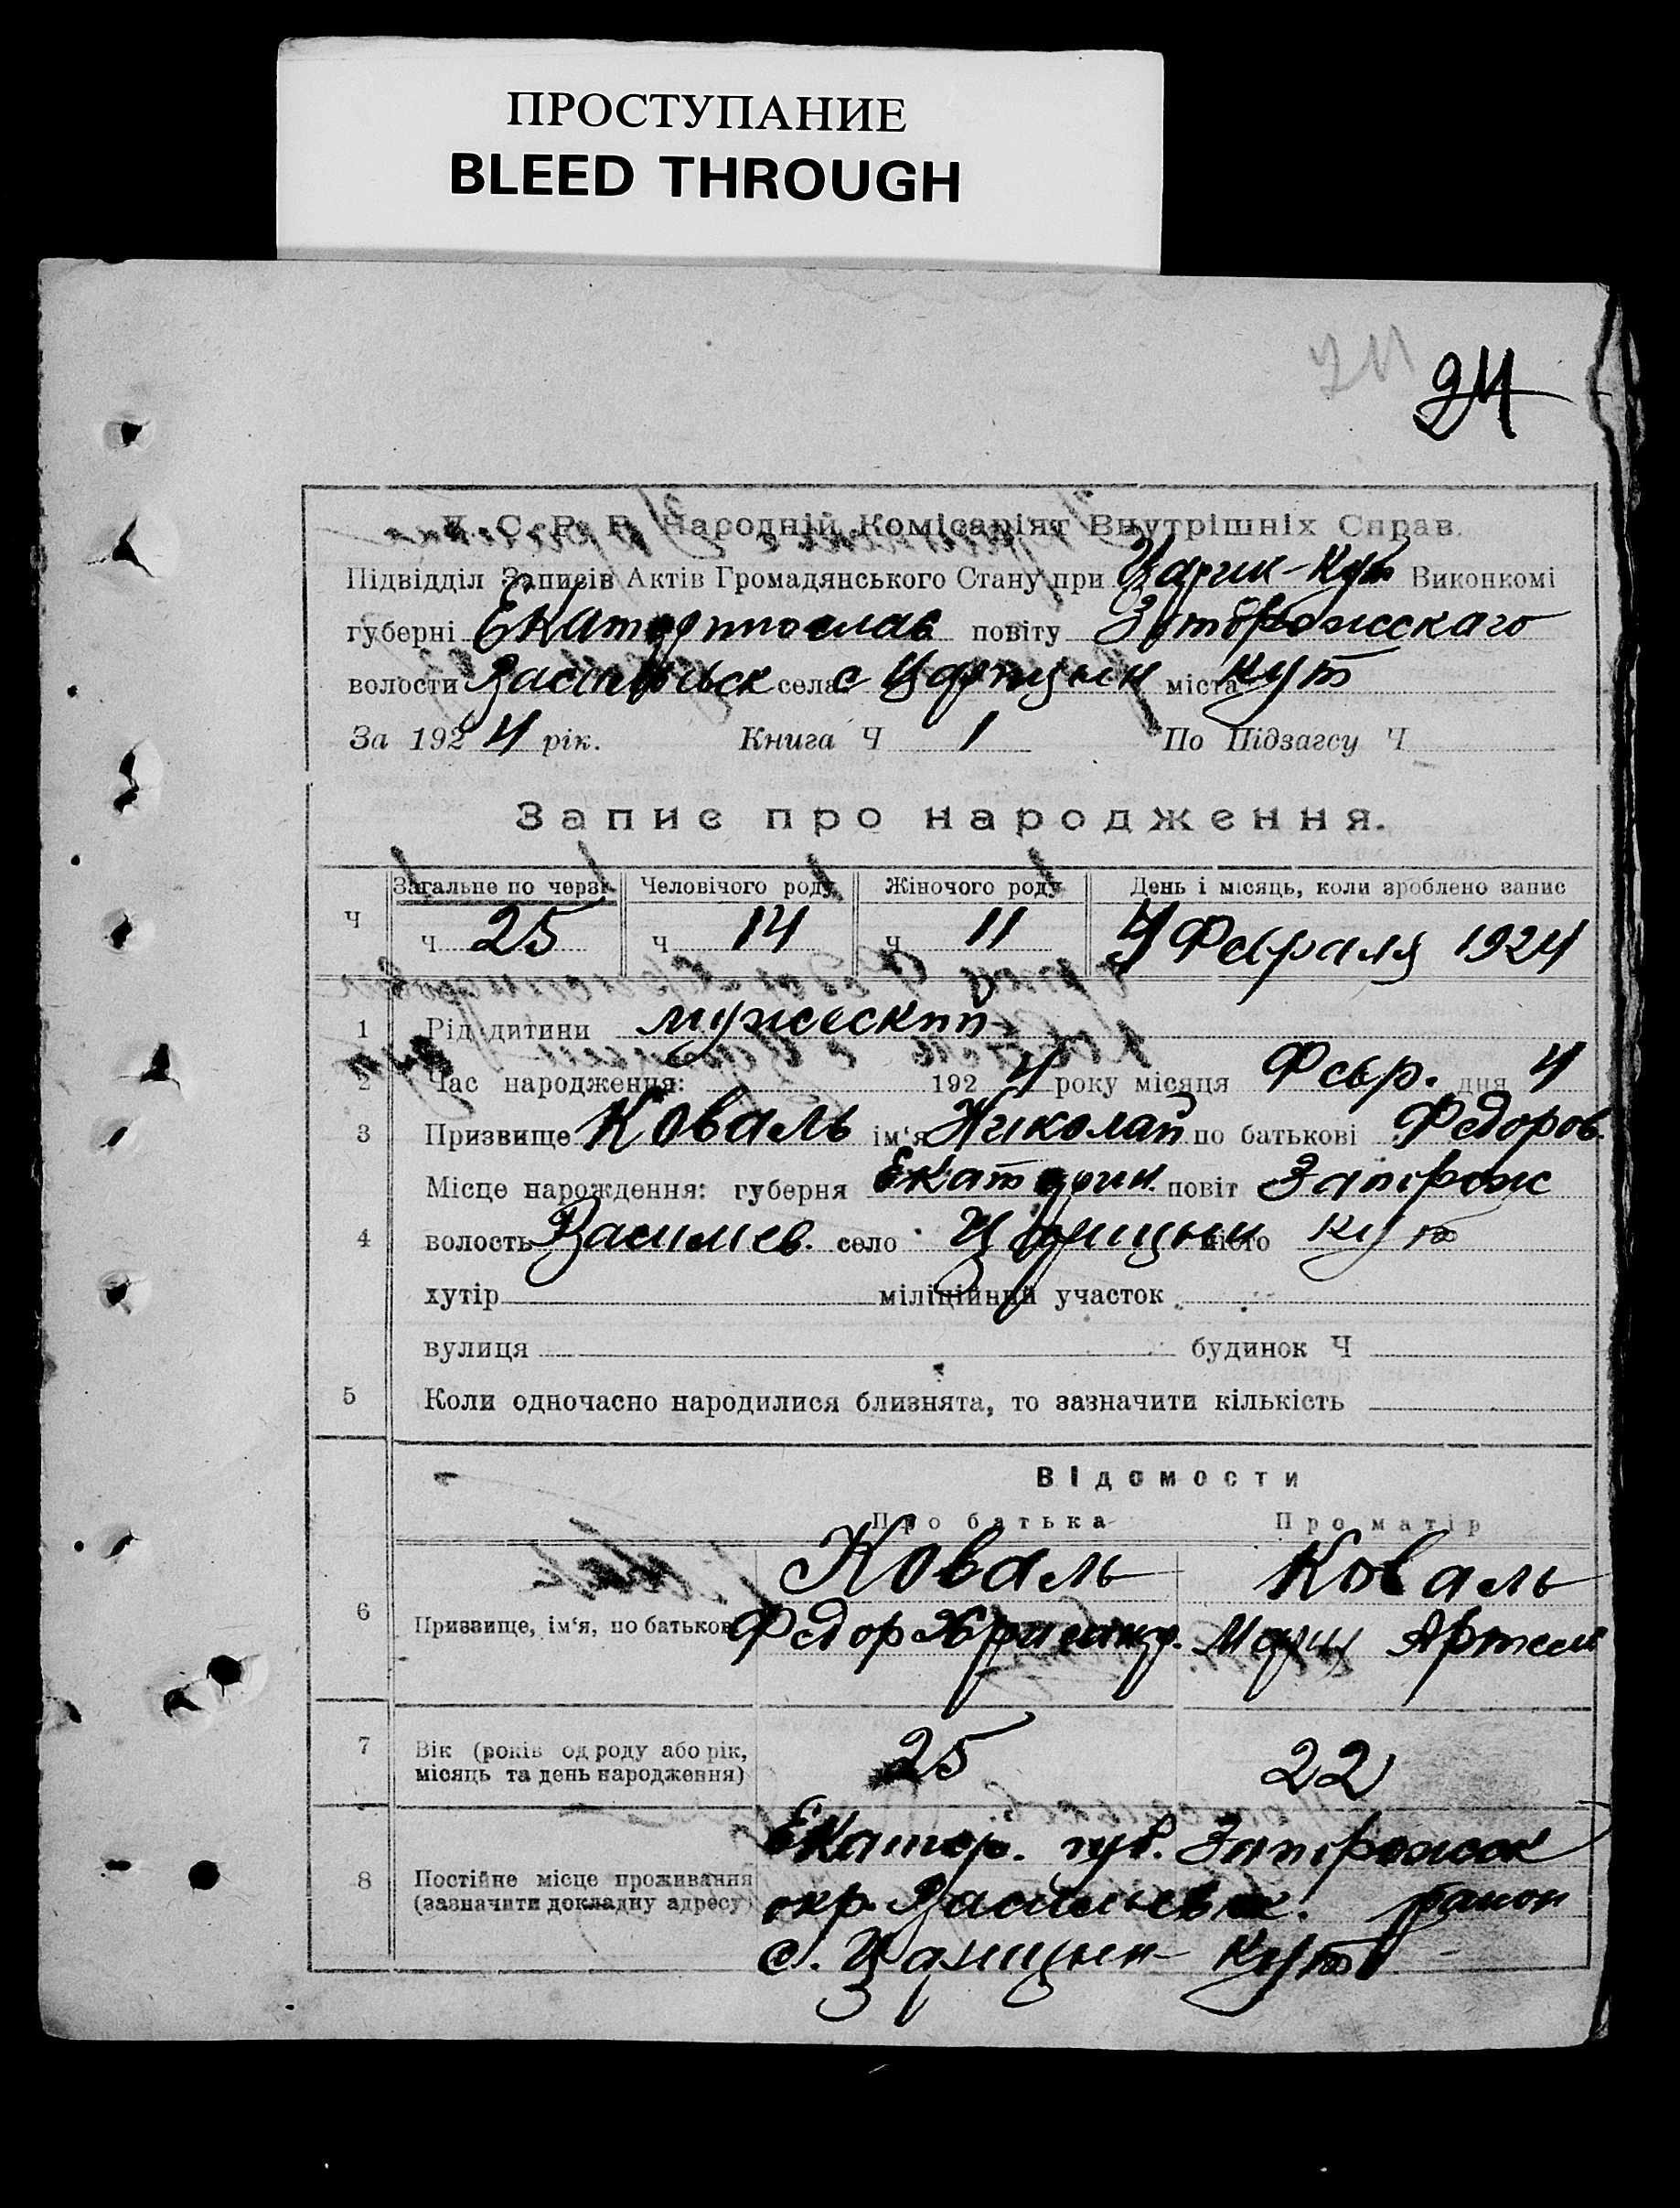 ПРОСТУПАНИЕ
BLEED THROUGH
24
У. С. Р. Р. Народній Комісаріят Внутрішніх Справ.
Підвідділ Записів Актів Громадянського Стану при Цариц-Кут Виконкомі
губерні Екатеринослав повіту Запорожскаго
волости села с Царицын міста Кут
За 1924 рік. Книга Ч 1 По Підзагсу Ч
Запис про народження.
Загальне по черзі Человічого роду Жіночого роду День і місяць, коли зроблено запис
Ч Ч 25 Ч 14 Ч 11 4 Февраля 1924
1 Рід дитини мужескип
2 Час народження: 1924 року місяця Февр. дня 4
3 Призвище Коваль ім'я Николай по батькові Федоров.
Місце нарождення: губерня Екатерин. повіт Запорож
4 волость Василев. село Царицын місто Кут
хутір міліційний участок
вулиця будинок Ч
5 Коли одночасно народилися близнята, то зазначити кількість
Відомости
Про батька Про матір
Коваль Коваль
6 Призвище, ім'я, по батькові Федор Мария Артем
7 Вік (років од роду або рік, 25 22
місяць та день народження)
Екатер. губ. Запорожск
8 Постійне місце проживання
(зазначити докладну адресу) окр. Васильевск. район
с. Царицын Кут